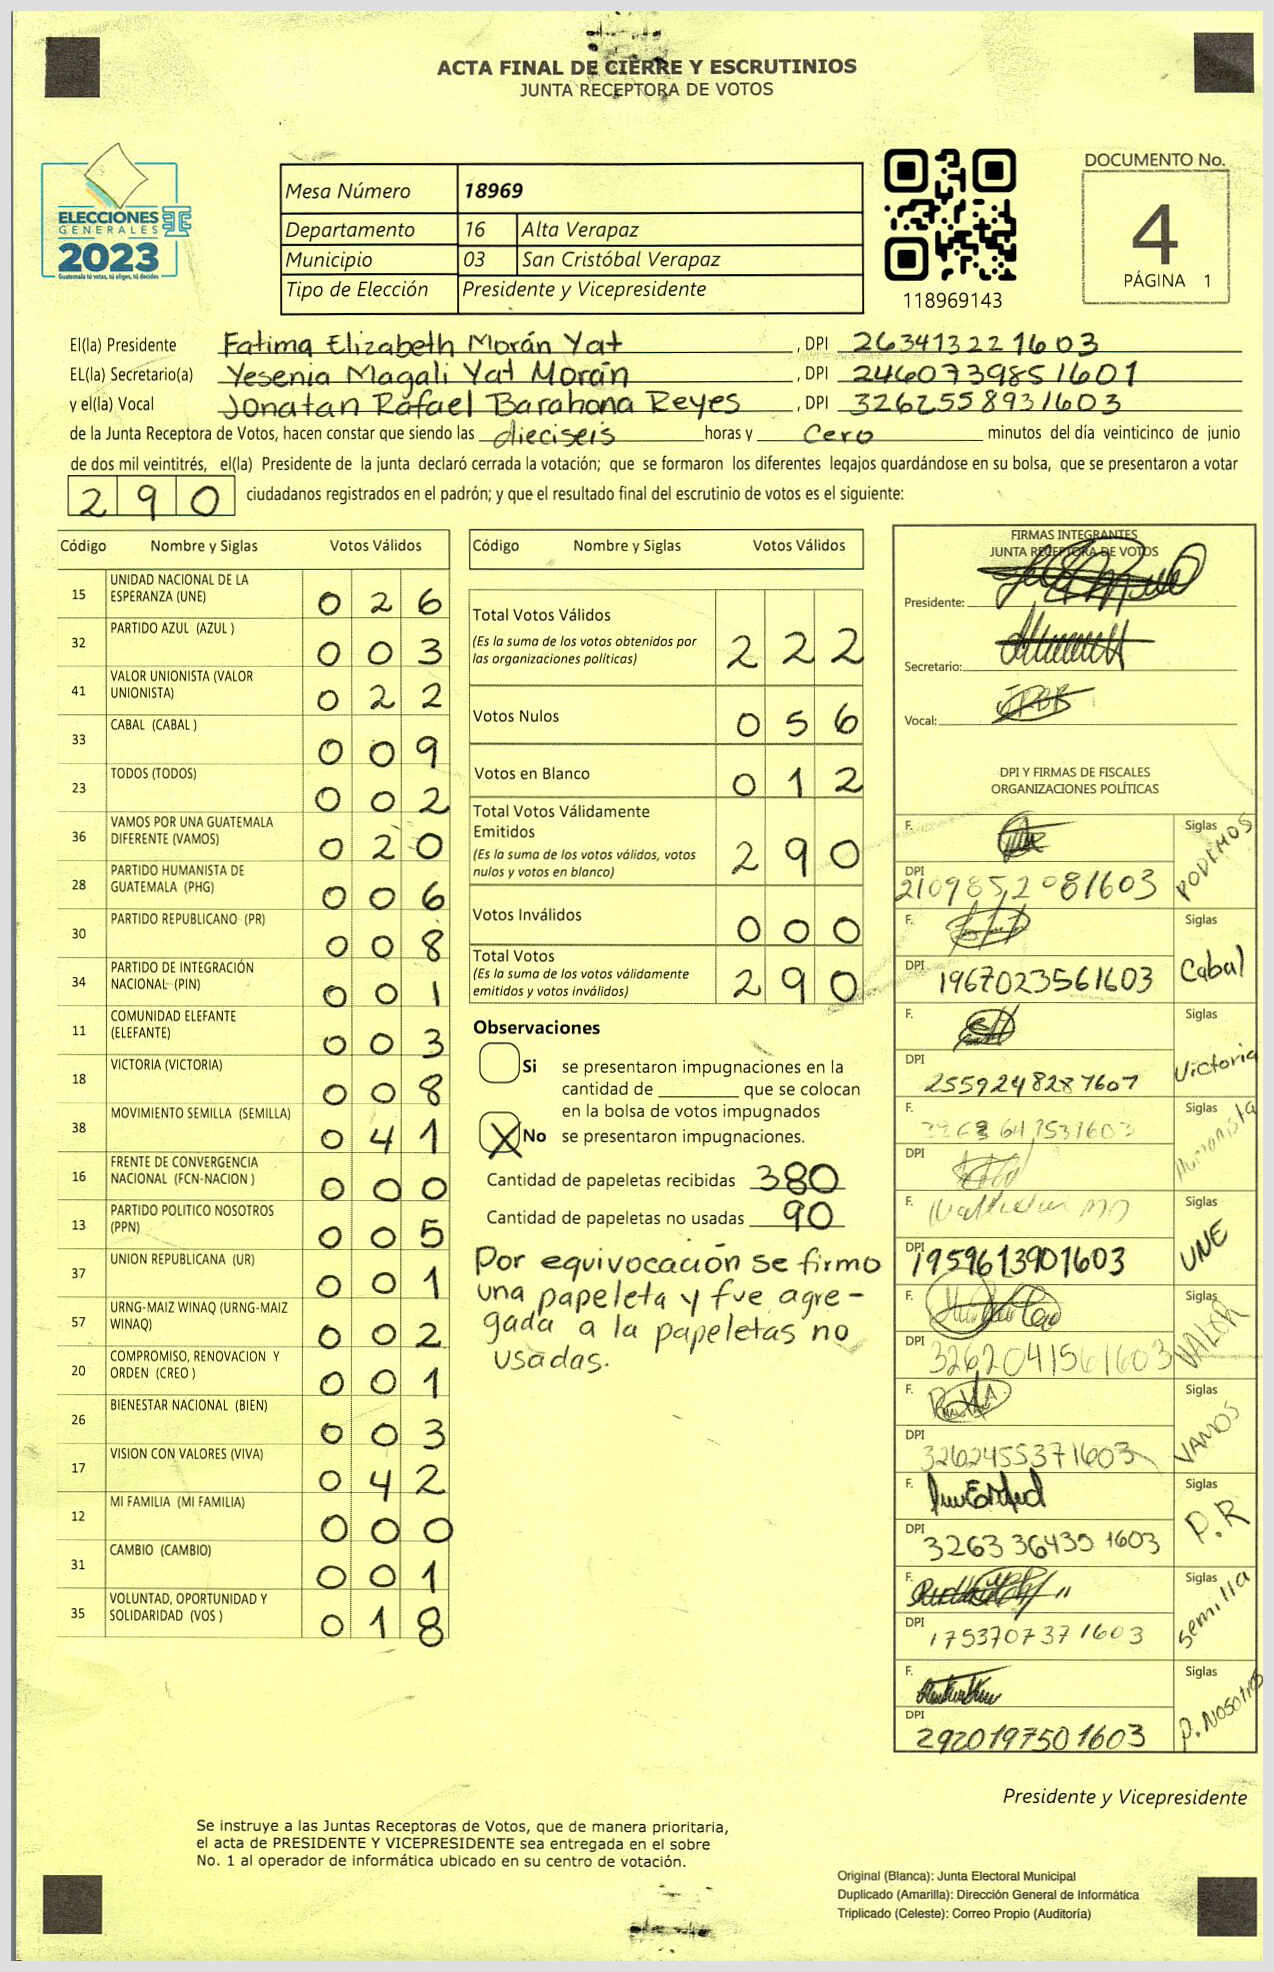 ACTA FINAL DE CIERRE Y ESCRUTINIOS
JUNTA RECEPTORA DE VOTOS
ELECCIONES
GENERALES
2023
Guatemala tú votas, tú eliges, tú decides
Mesa Número 18969
Departamento 16 Alta Verapaz
Municipio 03 San Cristóbal Verapaz
Tipo de Elección Presidente y Vicepresidente
118969143
DOCUMENTO No.
4
PÁGINA 1
El(la) Presidente Fatima Elizabeth Morán Yat , DPI 263413221603
EL(la) Secretario(a) Yesenia Magali Yat Morán , DPI 2460739851601
y el(la) Vocal Jonatan Rafael Barahona Reyes , DPI 3262558931603
de la Junta Receptora de Votos, hacen constar que siendo las dieciseis horas y cero minutos del día veinticinco de junio
de dos mil veintitrés, el(la) Presidente de la junta declaró cerrada la votación; que se formaron los diferentes legajos guardándose en su bolsa, que se presentaron a votar
290 ciudadanos registrados en el padrón; y que el resultado final del escrutinio de votos es el siguiente:
Código Nombre y Siglas Votos Válidos
15 UNIDAD NACIONAL DE LA ESPERANZA (UNE) 026
32 PARTIDO AZUL (AZUL ) 003
41 VALOR UNIONISTA (VALOR UNIONISTA) 022
33 CABAL (CABAL ) 009
23 TODOS (TODOS) 002
36 VAMOS POR UNA GUATEMALA DIFERENTE (VAMOS) 020
28 PARTIDO HUMANISTA DE GUATEMALA (PHG) 006
30 PARTIDO REPUBLICANO (PR) 008
34 PARTIDO DE INTEGRACIÓN NACIONAL (PIN) 001
11 COMUNIDAD ELEFANTE (ELEFANTE) 003
18 VICTORIA (VICTORIA) 008
38 MOVIMIENTO SEMILLA (SEMILLA) 041
16 FRENTE DE CONVERGENCIA NACIONAL (FCN-NACION ) 000
13 PARTIDO POLITICO NOSOTROS (PPN) 005
37 UNION REPUBLICANA (UR) 001
57 URNG-MAIZ WINAQ (URNG-MAIZ WINAQ) 002
20 COMPROMISO, RENOVACION Y ORDEN (CREO ) 001
26 BIENESTAR NACIONAL (BIEN) 003
17 VISION CON VALORES (VIVA) 042
12 MI FAMILIA (MI FAMILIA) 000
31 CAMBIO (CAMBIO) 001
35 VOLUNTAD, OPORTUNIDAD Y SOLIDARIDAD (VOS ) 018
Código Nombre y Siglas Votos Válidos
Total Votos Válidos
(Es la suma de los votos obtenidos por
las organizaciones políticas) 222
Votos Nulos 056
Votos en Blanco 012
Total Votos Válidamente
Emitidos
(Es la suma de los votos válidos, votos
nulos y votos en blanco) 290
Votos Inválidos 000
Total Votos
(Es la suma de los votos válidamente
emitidos y votos inválidos) 290
Observaciones
Si se presentaron impugnaciones en la
cantidad de ________ que se colocan
en la bolsa de votos impugnados
X No se presentaron impugnaciones.
Cantidad de papeletas recibidas 380
Cantidad de papeletas no usadas 90
Por equivocación se firmo
una papeleta y fue agre-
gada a la papeletas no
usadas.
FIRMAS INTEGRANTES
JUNTA RECEPTORA DE VOTOS
Presidente:
Secretario:
Vocal:
DPI Y FIRMAS DE FISCALES
ORGANIZACIONES POLÍTICAS
F. Siglas PODEMOS
DPI 2109852081603
F. Siglas Cabal
DPI 1967023561603
F. Siglas Victoria
DPI 2559248287607
F. Siglas Humanista
DPI
F. Siglas UNE
DPI 1959613901603
F. Siglas VALOR
DPI 3262041561603
F. Siglas VAMOS
DPI 3262455371603
F. Siglas P.R
DPI 3263364351603
F. Siglas semilla
DPI 1753707371603
F. Siglas P. Nosotros
DPI 2920197501603
Presidente y Vicepresidente
Se instruye a las Juntas Receptoras de Votos, que de manera prioritaria,
el acta de PRESIDENTE Y VICEPRESIDENTE sea entregada en el sobre
No. 1 al operador de informática ubicado en su centro de votación.
Original (Blanca): Junta Electoral Municipal
Duplicado (Amarilla): Dirección General de Informática
Triplicado (Celeste): Correo Propio (Auditoría)